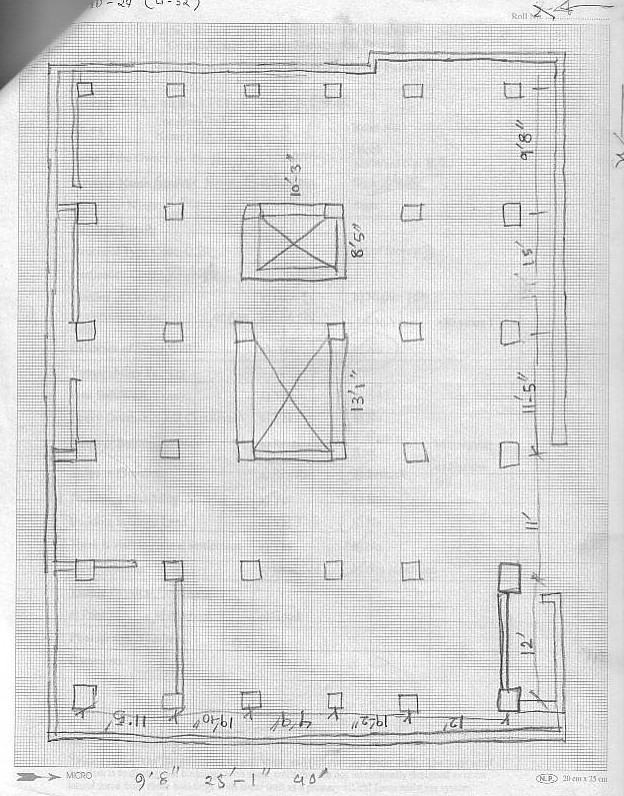 Roll No.
9'8"
10'-3"
8'5"
15'
13'1"
11'-5"
11'
12'
11'5'
19'10"
9'9'
19'2"
12'
MICRO
9'8" 25'-1" 40'
N.P. 20 cm x 25 cm